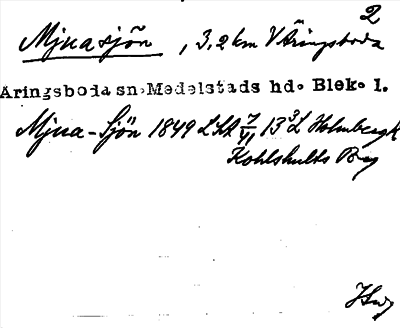 2
Mjuasjön, 3,2 km V Äringsboda
Äringsboda sn. Medelstads hd. Blek. l.
Mjua-Sjön 1849 LSA 7/VI 13 3 L Holmbergh
Kohlshults Bg